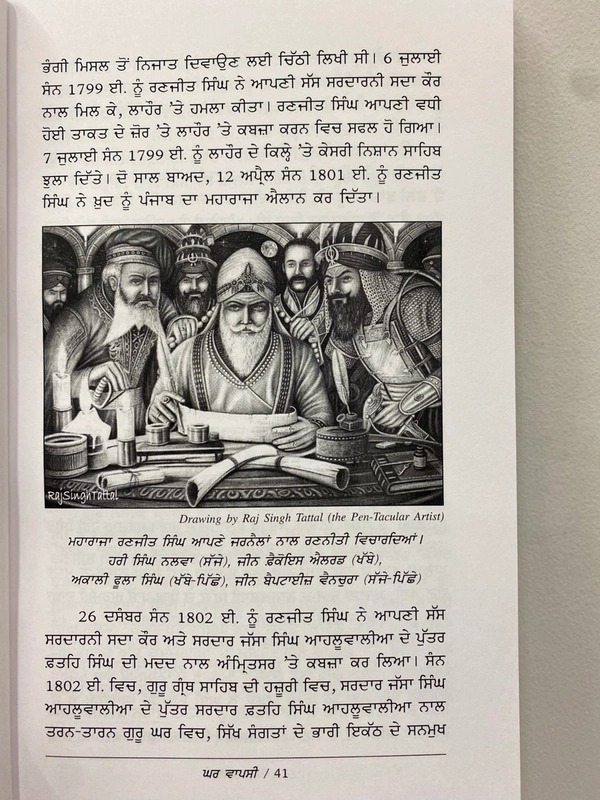 ਭੰਗੀ ਮਿਸਲ ਤੋਂ ਨਿਜਾਤ ਦਿਵਾਉਣ ਲਈ ਚਿੱਠੀ ਲਿਖੀ ਸੀ। 6 ਜੁਲਾਈ
ਸੰਨ 1799 ਈ. ਨੂੰ ਰਣਜੀਤ ਸਿੰਘ ਨੇ ਆਪਣੀ ਸੱਸ ਸਰਦਾਰਨੀ ਸਦਾ ਕੌਰ
ਨਾਲ ਮਿਲ ਕੇ, ਲਾਹੌਰ 'ਤੇ ਹਮਲਾ ਕੀਤਾ। ਰਣਜੀਤ ਸਿੰਘ ਆਪਣੀ ਵਧੀ
ਹੋਈ ਤਾਕਤ ਦੇ ਜ਼ੋਰ 'ਤੇ ਲਾਹੌਰ 'ਤੇ ਕਬਜ਼ਾ ਕਰਨ ਵਿਚ ਸਫਲ ਹੋ ਗਿਆ।
7 ਜੁਲਾਈ ਸੰਨ 1799 ਈ. ਨੂੰ ਲਾਹੌਰ ਦੇ ਕਿਲ੍ਹੇ 'ਤੇ ਕੇਸਰੀ ਨਿਸ਼ਾਨ ਸਾਹਿਬ
ਝੁਲਾ ਦਿੱਤੇ। ਦੋ ਸਾਲ ਬਾਅਦ, 12 ਅਪ੍ਰੈਲ ਸੰਨ 1801 ਈ. ਨੂੰ ਰਣਜੀਤ
ਸਿੰਘ ਨੇ ਖ਼ੁਦ ਨੂੰ ਪੰਜਾਬ ਦਾ ਮਹਾਰਾਜਾ ਐਲਾਨ ਕਰ ਦਿੱਤਾ।
RajSinghTattal
Drawing by Raj Singh Tattal (the Pen-Tacular Artist)
ਮਹਾਰਾਜਾ ਰਣਜੀਤ ਸਿੰਘ ਆਪਣੇ ਜਰਨੈਲਾਂ ਨਾਲ ਰਣਨੀਤੀ ਵਿਚਾਰਦਿਆਂ।
ਹਰੀ ਸਿੰਘ ਨਲਵਾ (ਸੱਜੇ), ਜੀਨ ਫ਼ੈਕੋਇਸ ਐਲਰਡ (ਖੱਬੇ),
ਅਕਾਲੀ ਫੂਲਾ ਸਿੰਘ (ਖੱਬੇ-ਪਿੱਛੇ), ਜੀਨ ਬੈਪਟਾਈਜ਼ ਵੈਨਚੁਰਾ (ਸੱਜੇ-ਪਿੱਛੇ)
26 ਦਸੰਬਰ ਸੰਨ 1802 ਈ. ਨੂੰ ਰਣਜੀਤ ਸਿੰਘ ਨੇ ਆਪਣੀ ਸੱਸ
ਸਰਦਾਰਨੀ ਸਦਾ ਕੌਰ ਅਤੇ ਸਰਦਾਰ ਜੱਸਾ ਸਿੰਘ ਆਹਲੂਵਾਲੀਆ ਦੇ ਪੁੱਤਰ
ਫ਼ਤਹਿ ਸਿੰਘ ਦੀ ਮਦਦ ਨਾਲ ਅੰਮ੍ਰਿਤਸਰ 'ਤੇ ਕਬਜ਼ਾ ਕਰ ਲਿਆ। ਸੰਨ
1802 ਈ. ਵਿਚ, ਗੁਰੂ ਗ੍ਰੰਥ ਸਾਹਿਬ ਦੀ ਹਜ਼ੂਰੀ ਵਿਚ, ਸਰਦਾਰ ਜੱਸਾ ਸਿੰਘ
ਆਹਲੂਵਾਲੀਆ ਦੇ ਪੁੱਤਰ ਸਰਦਾਰ ਫ਼ਤਹਿ ਸਿੰਘ ਆਹਲੂਵਾਲੀਆ ਨਾਲ
ਤਰਨ-ਤਾਰਨ ਗੁਰੂ ਘਰ ਵਿਚ, ਸਿੱਖ ਸੰਗਤਾਂ ਦੇ ਭਾਰੀ ਇਕੱਠ ਦੇ ਸਨਮੁਖ
ਘਰ ਵਾਪਸੀ / 41